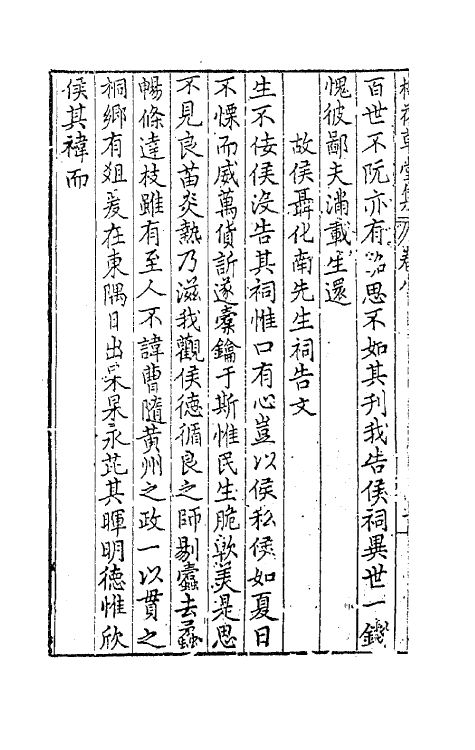 百世不阮亦有 思不如其刊我告侯祠異世一錢
愧彼鄙夫滿載生還
故侯聶化南先生祠告文
生不佞侯沒告其祠惟口有心豈以侯私侯如夏日
不慄而威萬貨訢遂橐鑰于斯惟民生脆 美是思
不見良苗炎熱乃滋我觀侯德循良之師剔蠹去蟊
暢條達枝雖有至人不諱曹隨黃州之政一以貫之
桐鄉有俎爰在東隅日出杲杲永芘其暉明德惟欣
侯其禕而